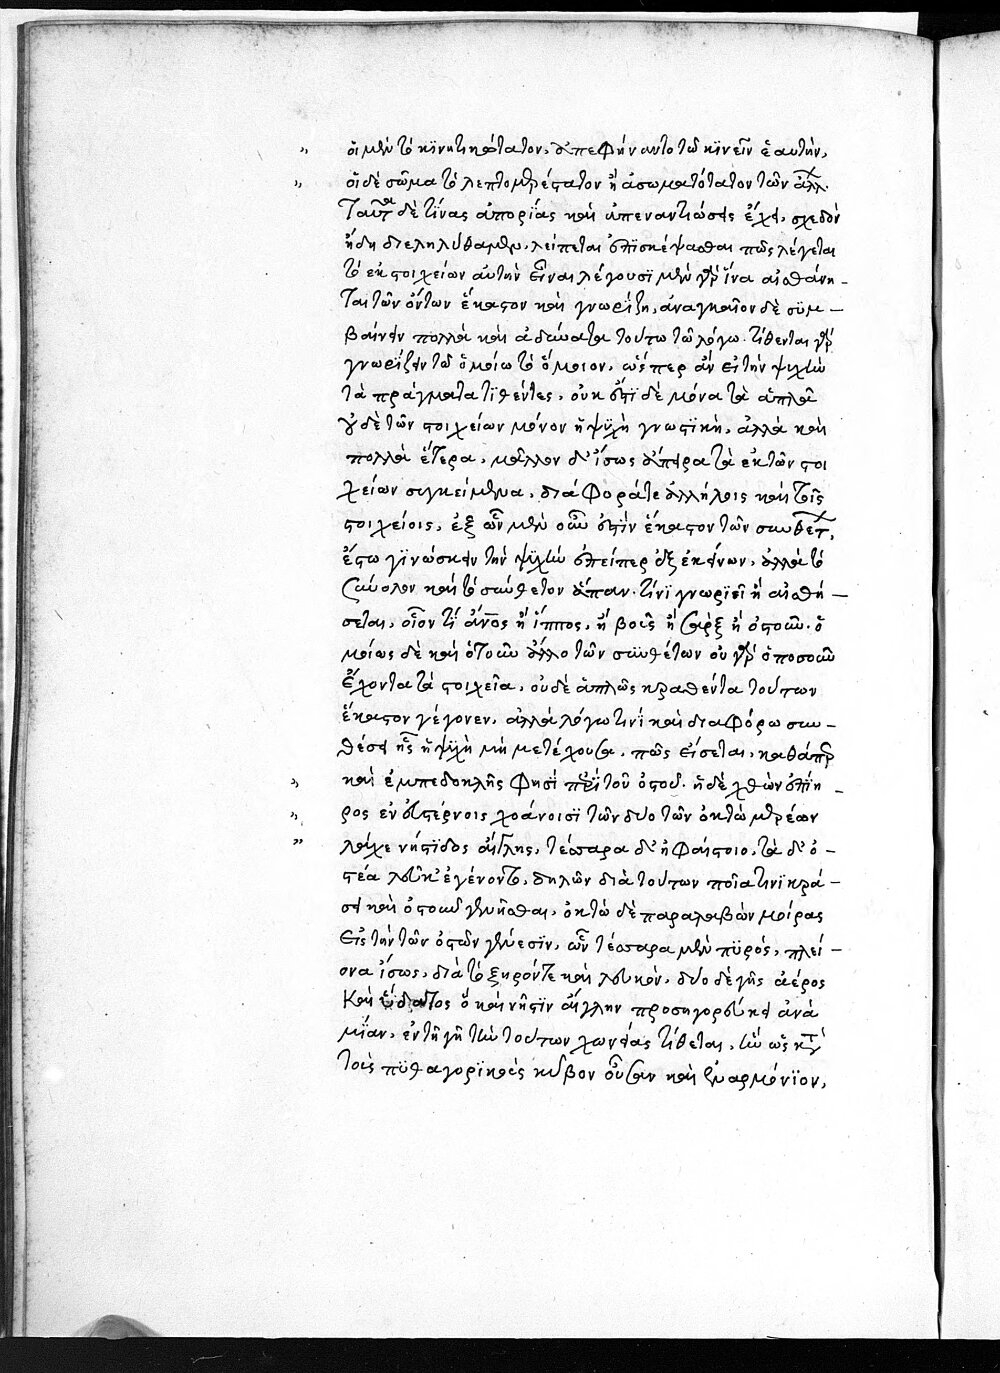 οἱ μὲν τὸ κινητικώτατον, ἀπεφήναντο τῶ κινεῖν ἑαυτήν,
οἱ δὲ σῶμα τὸ λεπτομερέστατον ἢ ἀσωματότατον τῶν ἄλλ.
Ταῦτα δὲ τίνας ἀπορίας καὶ ὑπεναντιώσεις ἔχει, σχεδὸν
ἤδη διεληλύθαμεν, λείπεται ἐπισκέψασθαι πῶς λέγεται
τὸ ἐκ στοιχείων αὐτὴν εἶναι λέγουσι μὲν γὰρ ἵνα αἰσθάνη-
ται τῶν ὄντων ἕκαστον καὶ γνωρίζη, ἀναγκαῖον δὲ συμ-
βαίνειν πολλὰ καὶ ἀδύνατα τούτω τῶ λόγω. τίθενται γὰρ
γνωρίζειν τῶ ὁμοίω τὸ ὅμοιον, ὥσπερ ἂν εἰ τὴν ψυχὴν
τὰ πράγματα τιθέντες, οὐκ ἔστι δὲ μόνα τὰ ἁπλᾶ
οὐδὲ τῶν στοιχείων μόνον ἡ ψυχὴ γνωστικὴ, ἀλλὰ καὶ
πολλὰ ἕτερα, μᾶλλον δ' ἴσως ἄπειρα τὰ ἐκ τῶν στοι
χείων συγκείμενα, διάφορά τε ἀλλήλοις καὶ τοῖς
στοιχείοις, ἐξ ὧν μὲν οὖν ἐστὶν ἕκαστον τῶν συνθέτ,
ἔστω γινώσκειν τὴν ψυχὴν ἐπείπερ ἐξ ἐκείνων, ἀλλὰ τὸ
σύνολον καὶ τὸ σύνθετον ἅπαν. τίνι γνωριεῖ ἢ αἰσθή-
σεται, οἷον τί ἄνος ἢ ἵππος, ἢ βοῦς ἢ σὰρξ ἢ ὀστοῦν. ὁ
μοίως δὲ καὶ ὁτιοῦν ἄλλο τῶν συνθέτων οὐ γὰρ ὁποσοῦν
ἔχοντα τὰ στοιχεῖα, οὐδὲ ἁπλῶς κραθέντα τούτων
ἕκαστον γέγονεν, ἀλλὰ λόγω τινὶ καὶ διαφόρω συν-
θέσει ἧς ἡ ψυχὴ μὴ μετέχουσα, πῶς εἴσεται, καθάπερ
καὶ ἐμπεδοκλῆς φησὶ περὶ τοῦ ὀστοῦ. ἡ δὲ χθὼν ἐπίη-
ρος ἐν εὐστέρνοις χοάνοισι τῶν δύο τῶν ὀκτὼ μερέων
λάχε νήστιδος αἴγλης, τέσσαρα δ' ἡφαίστοιο, τὰ δ' ὀ-
στέα λεύκ' ἐγένοντο, δηλῶν διὰ τούτων ποία τινὶ κρά-
σει καὶ ὀστοῦν γενῆσθαι, ὀκτὼ δὲ παραλαβὼν μοίρας
εἰς τὴν τῶν ὀστῶν γένεσιν, ὧν τέσσαρα μὲν πυρός, πλεί-
ονα ἴσως, διὰ τὸ ξηρόν τε καὶ λευκόν, δύο δὲ γῆς ἀέρος
καὶ ὕδατος ὃ καὶ νῆστιν αἴγλην προσηγόρευκε ἀνὰ
μίαν, ἐν τῆ γῆ τὴν τούτων χωνείας τίθεται, ἣν ὡς κατὰ
τοὺς πυθαγορικοὺς κύβον οὖσαν καὶ ἐναρμόνιον,